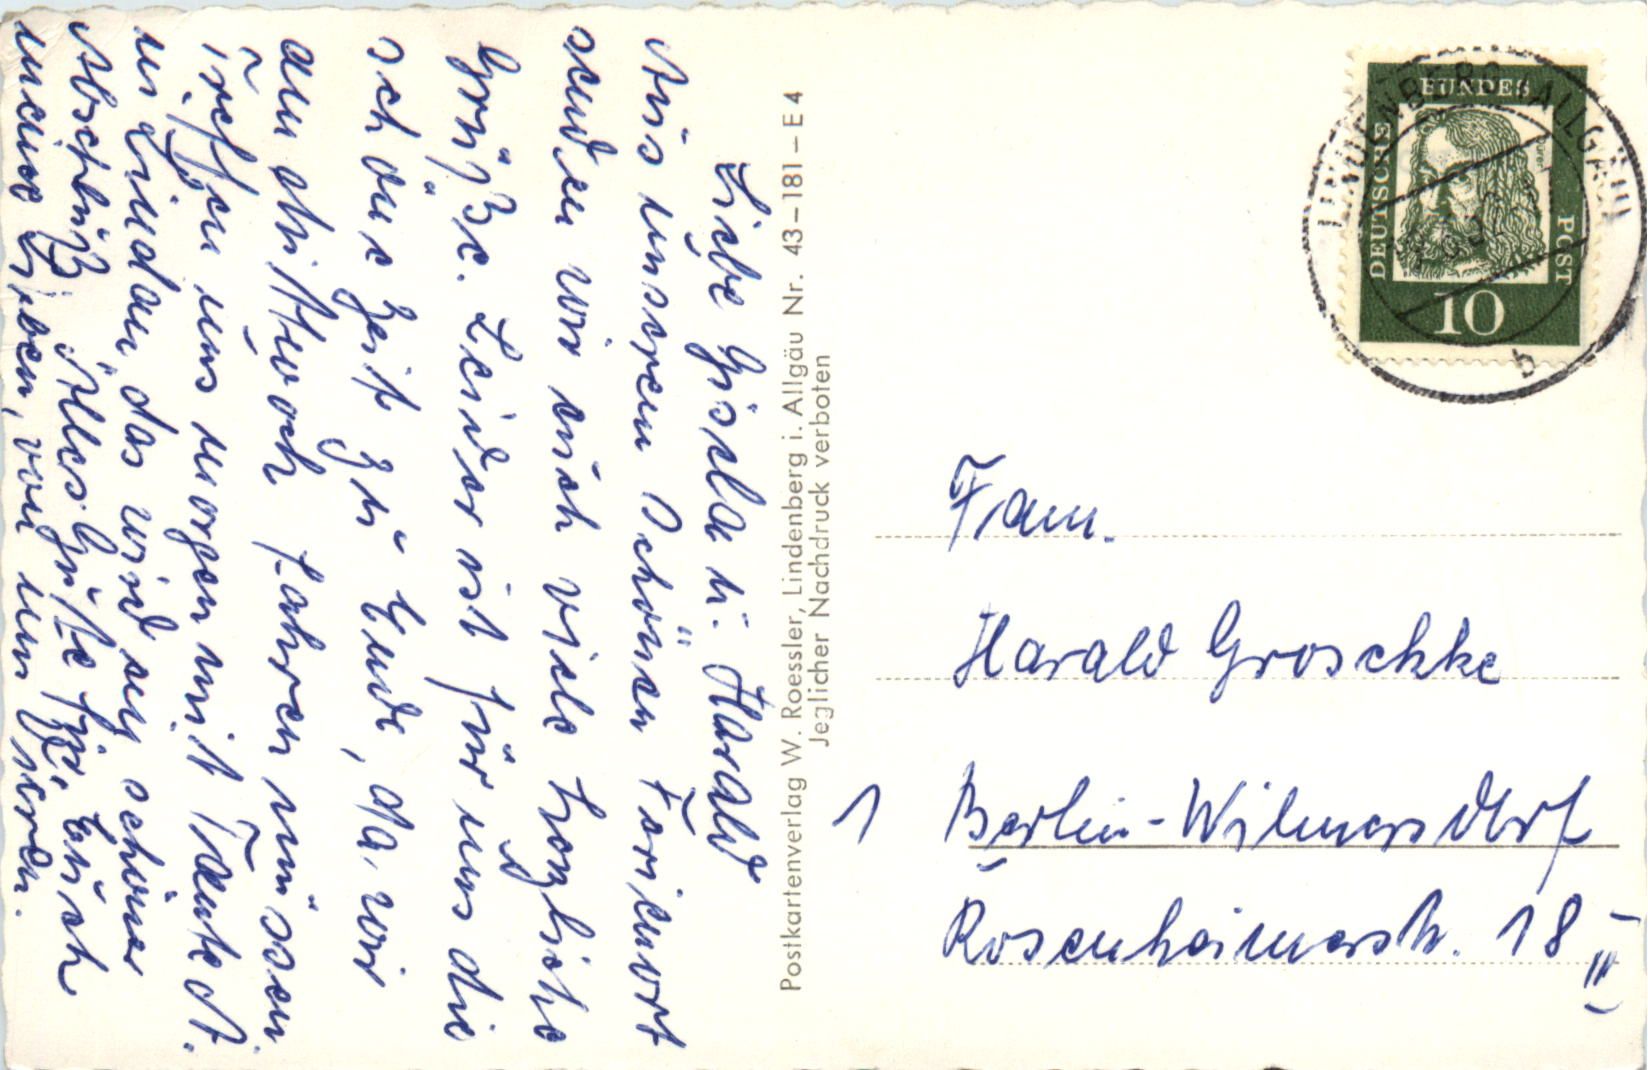 Liebe Gisela u. Harald
Aus unserem schönen Ferienort
senden wir euch viele herzliche
Grüße. Leider ist für uns die
schöne Zeit zu Ende, da wir
am Mittwoch fahren müssen.
Treffen uns morgen mit Tante A.
in Lindau, das wird ein schöner
Abschluß. Alles Gute für Euch
meine Lieben, von um Ihren.
Postkartenverlag W. Roessler, Lindenberg i. Allgäu Nr. 43-181-E 4
Jeglicher Nachdruck verboten
LINDENBERG (ALLGÄU)
b
BUNDES
DEUTSCHE
POST
Dürer
10
Fam.
Harald Groschke
1 Berlin-Wilmersdorf
Rosenheimerstr. 18 III